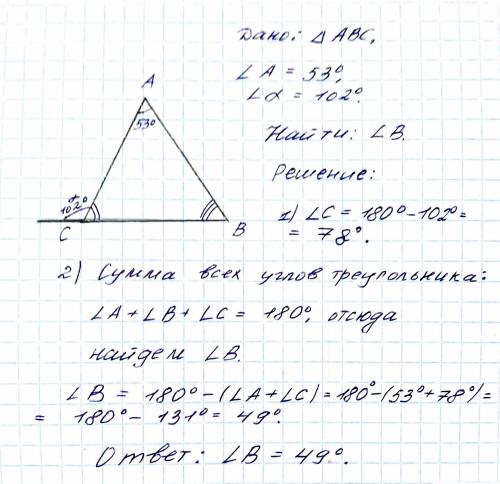 Дано: △ ABC,
∠A = 53°,
∠α = 102°.
Найти: ∠B.
Решение:
1) ∠C = 180° - 102° =
= 78°.
A
53°
α
102°
C
B
2) Сумма всех углов треугольника:
∠A + ∠B + ∠C = 180°, отсюда
найдем ∠B.
∠B = 180° - (∠A + ∠C) = 180° - (53° + 78°) =
= 180° - 131° = 49°.
Ответ: ∠B = 49°.